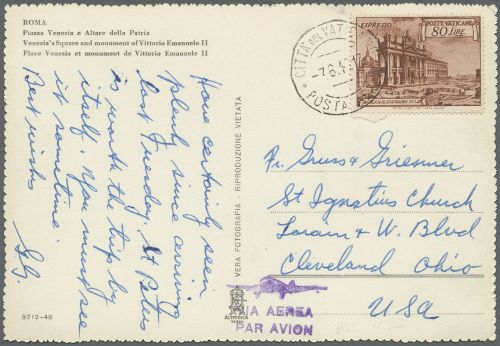 ROMA
Piazza Venezia e Altare della Patria
Venezia's Square and monument of Vittorio Emanuele II
Place Venezia et monument de Vittorio Emanuele II
Have certainly seen
plenty since arriving
last Tuesday. St Peters
is worth the trip by
itself. You must see
it sometime.
Best wishes
5712-48
VERA FOTOGRAFIA - RIPRODUZIONE VIETATA
ESPRESSO
POSTE VATICANE
80 LIRE
CITTÀ DEL VAT
-7.6.
POSTA
Fr. Gruss & Griesmer
St Ignatius Church
Lorain & W. Blvd
Cleveland Ohio
USA
VIA AEREA
PAR AVION